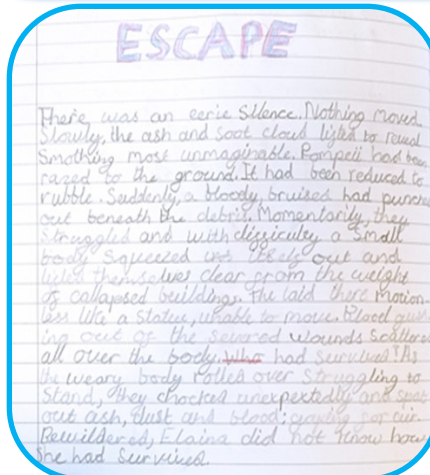 ESCAPE
There was an eerie silence. Nothing moved
Slowly, the ash and soot cloud lifted to reveal
Smothing most unmaginable. Pompeii had been
razed to the ground. It had been reduced to
rubble. Suddenly, a bloody, bruised had punched
out beneath the debris. Momentarily, they
Struggled and with difficulty a small
body squeezed out and
themselves clear from the weight
of collapsed buildings. The laid there motion-
less like a statue, unable to move. Blood gush-
ing out of the wounds scattered
all over the body. Who had survived? As
the weary body rolled over struggling to
stand, they chocked unexpectedly and spat
out ash, dust and blood; for air.
Bewildered, Elaina did not know how
She had survived.